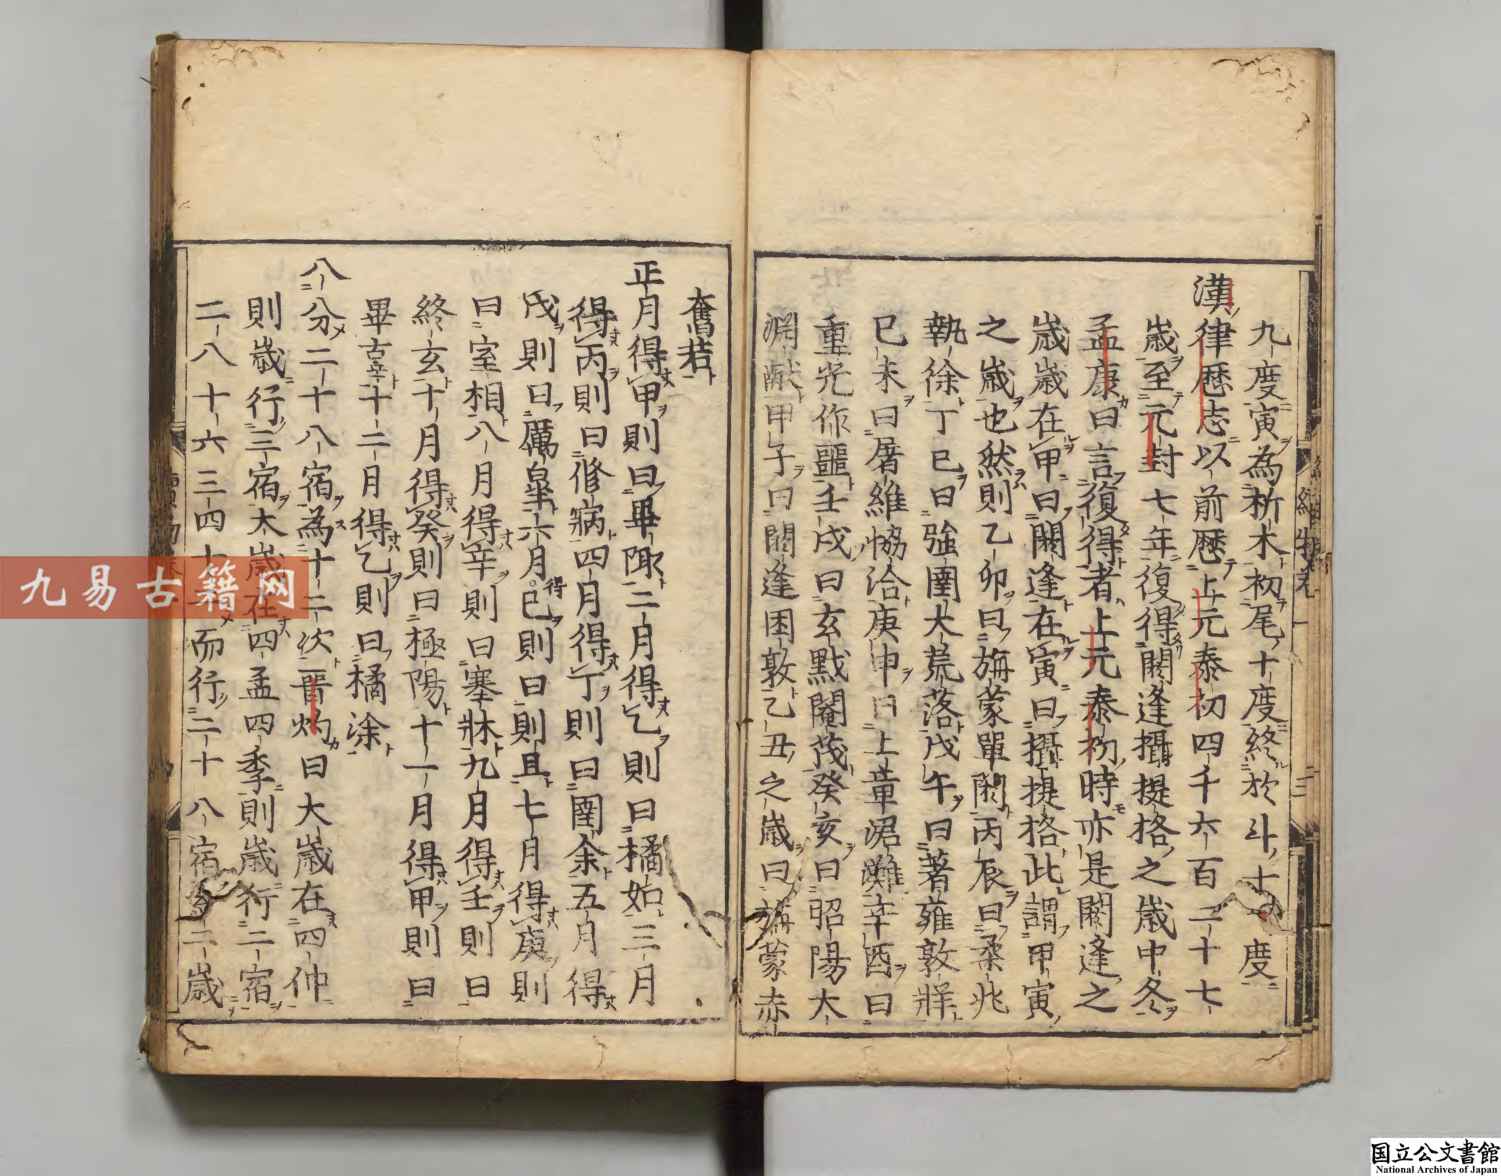 九度寅為析木初尾十度終於斗十一度
漢律歴志以前歴上元泰初四千六百一十七
歳至元封七年復得閼逢攝提格之歳中冬
孟康曰言復得者上元泰初時亦是閼逢之
歳歳在甲曰閼逢在寅曰攝提格此謂甲寅
之歳也然則乙卯曰旃蒙單閼丙辰曰柔兆
執徐丁巳曰強圉大荒落戊午曰著雍敦牂
已未曰屠維協洽庚申曰上章涒灘辛酉曰
重光作噩壬戌曰玄黓閹茂癸亥曰昭陽大
淵獻甲子曰閼逢困敦乙丑之歳曰旃蒙赤
奮若
正月得甲則曰畢陬二月得乙則曰橘如三月
得丙則曰修病四月得丁則曰圉余五月得
戊則曰厲皐六月得已則曰則且七月得庚則
曰室相八月得辛則曰塞牀九月得壬則曰
終玄十月得癸則曰極陽十一月得甲則曰
畢辜十二月得乙則曰橘涂
八分二十八宿為十二次晋灼曰大歳在四仲
則歳行三宿太歳在四孟四季則歳行二宿
二八十六三四十二而行二十八宿十二歳
九易古籍网
国立公文書館
National Archives of Japan